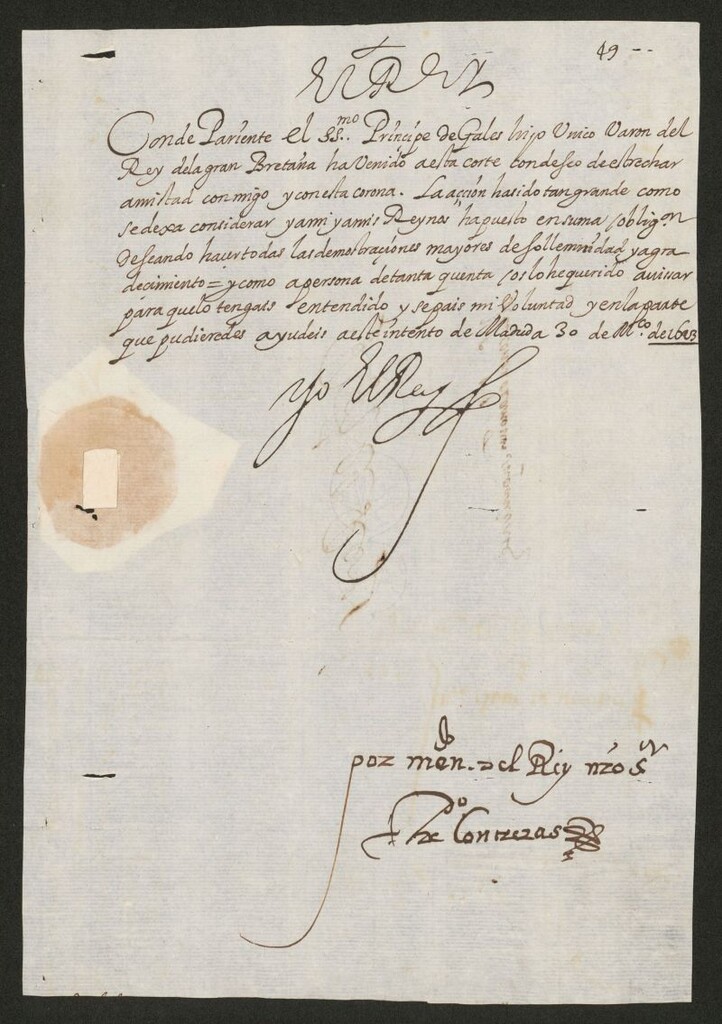 49 --
El Rey
Conde Pariente el SS.mo Principe de Gales hijo Unico Varon del
Rey dela gran Bretaña ha Venido aesta corte con deseo de estrechar
amistad con migo y con esta corona. La acçion ha sido tan grande como
se dexa considerar y ami y amis Reynos ha puesto en suma obligon
Deseando hacer todas las demostraciones mayores de sollemnidad y agra
decimiento = y como a persona de tanta quenta os lo he querido avissar
para que lo tengais entendido y sepais mi Voluntad y en la parte
que pudieredes ayudeis a este intento de Madrid a 30 de Mço. de 1623
Yo El Rey
por mdo. del Rey nro Sr
Po de Contreras